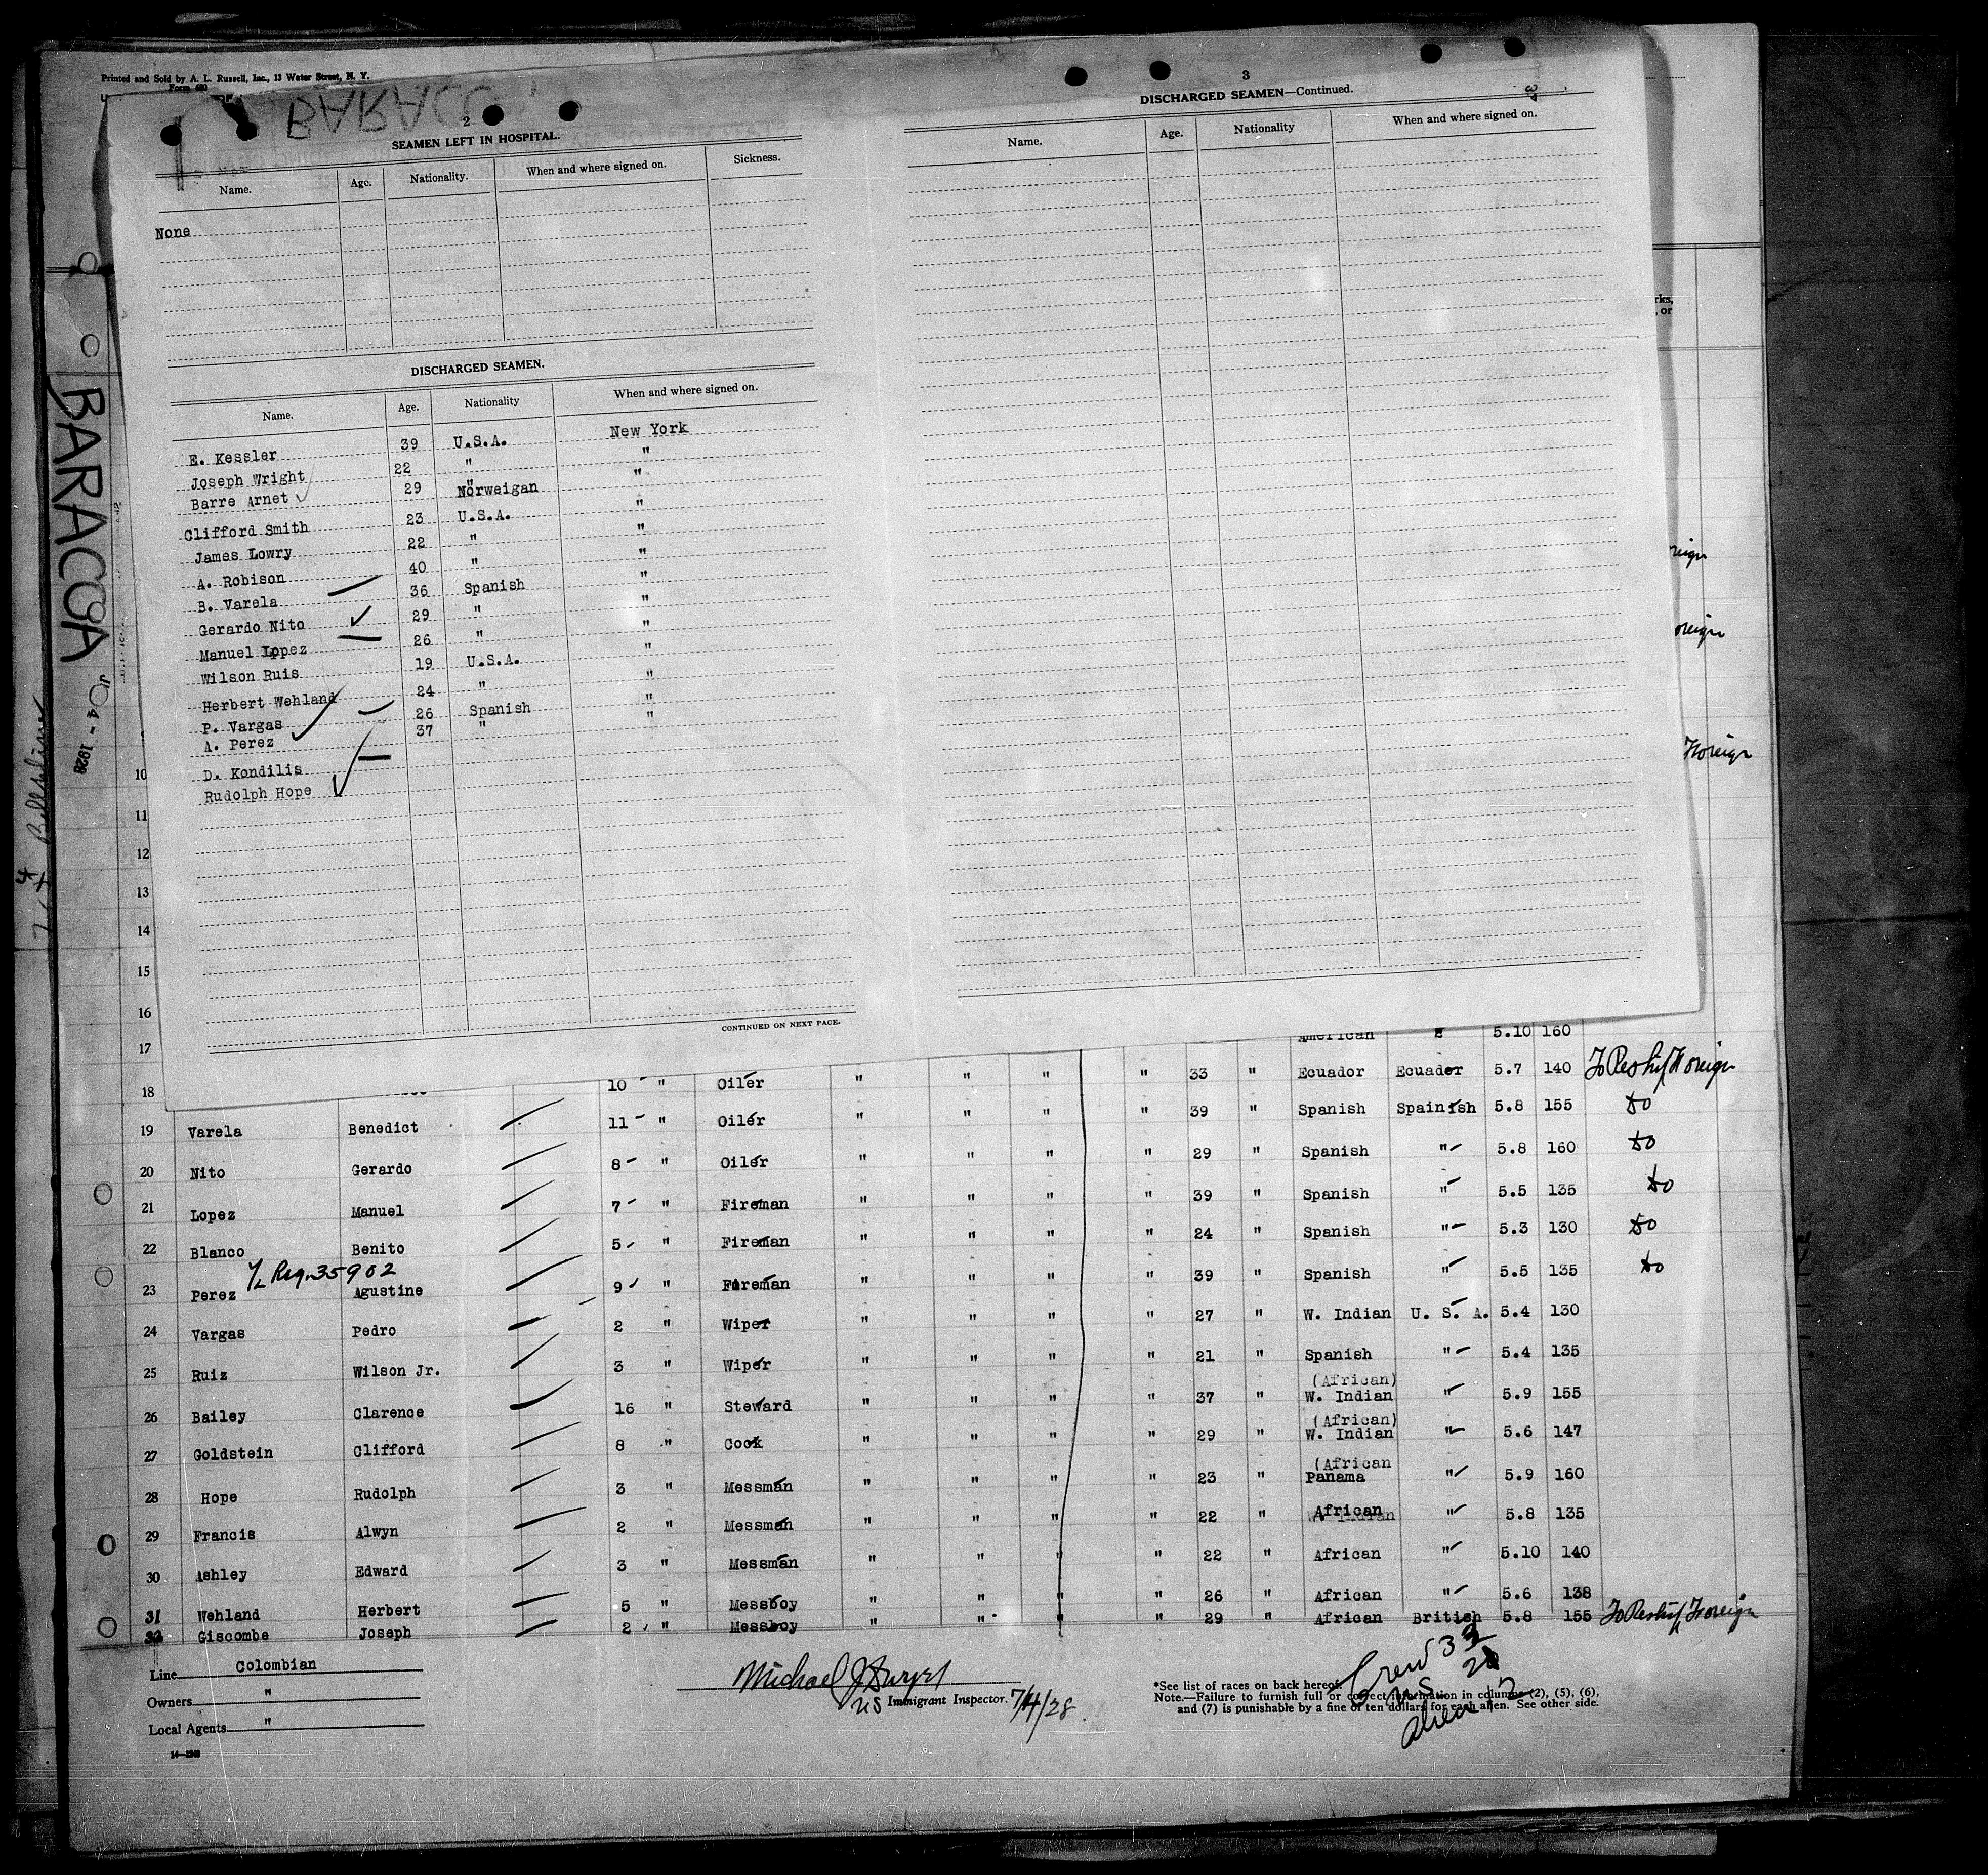 Printed and Sold by A. L. Russell, Inc., 13 Water Street, N. Y.
Form 680
2
SEAMEN LEFT IN HOSPITAL.
Name. Age. Nationality. When and where signed on. Sickness.
None
DISCHARGED SEAMEN.
Name. Age. Nationality When and where signed on.
E. Kessler 39 U.S.A. New York
Joseph Wright 22 " "
Barre Arnet 29 Norweigan "
Clifford Smith 23 U.S.A. "
James Lowry 22 " "
A. Robison 40 " "
B. Varela 36 Spanish "
Gerardo Nito 29 " "
Manuel Lopez 26 " "
Wilson Ruis 19 U.S.A. "
Herbert Wehland 24 " "
P. Vargas 26 Spanish "
A. Perez 37 " "
D. Kondilis
Rudolph Hope
CONTINUED ON NEXT PAGE.
3
DISCHARGED SEAMEN—Continued.
Name. Age. Nationality When and where signed on.
BARACOA
4 - 1928
rks,
, or
reign
oreign
Foreign
10
11
12
13
14
15
16
17 American " 5.10 160
18 10 " Oiler " " " " 33 " Ecuador Ecuador 5.7 140 To Reship Foreign
19 Varela Benedict 11 " Oiler " " " " 39 " Spanish Spainish 5.8 155 do
20 Nito Gerardo 8 " Oiler " " " " 29 " Spanish " 5.8 160 do
21 Lopez Manuel 7 " Fireman " " " " 39 " Spanish " 5.5 135 do
22 Blanco Benito 5 " Fireman " " " " 24 " Spanish " 5.3 130 do
Reg. 35902
23 Perez Agustine 9 " Fireman " " " " 39 " Spanish " 5.5 135 do
24 Vargas Pedro 2 " Wiper " " " " 27 " W. Indian U. S. A. 5.4 130
25 Ruiz Wilson Jr. 3 " Wiper " " " " 21 " Spanish " 5.4 135
26 Bailey Clarence 16 " Steward " " " " 37 " (African) W. Indian " 5.9 155
27 Goldstein Clifford 8 " Cook " " " " 29 " (African) W. Indian " 5.6 147
28 Hope Rudolph 3 " Messman " " " " 23 " (African Panama " 5.9 160
29 Francis Alwyn 2 " Messman " " " " 22 " African " 5.8 135
30 Ashley Edward 3 " Messman " " " " 22 " African " 5.10 140
31 Wehland Herbert 5 " Messboy " " " " 26 " African " 5.6 138
32 Giscombe Joseph 2 " Messboy " " " " 29 " African British 5.8 155 To Reship Foreign
Line Colombian
Owners "
Local Agents "
14—1240
Michael J
US Immigrant Inspector. 7/4/28.
*See list of races on back hereof.
Note.—Failure to furnish full or correct information in columns (2), (5), (6),
and (7) is punishable by a fine of ten dollars for each alien. See other side.
Crew 32
US 20
alien 12